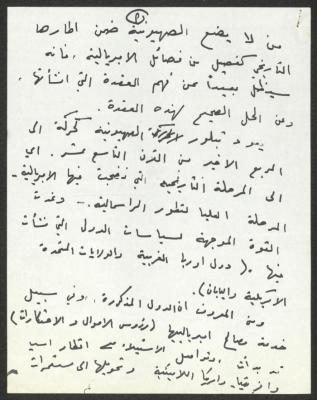 من لا يضع الصهيونية ضمن اطارها
التاريخي كفصيل من فصائل الامبريالية ، فانه
سيظل بعيداً عن فهم العقدة التي انشأتها
وعن الحل الصحيح لهذه العقدة.
يعود تبلور الصهيونية كحركة الى
الربع الاخير من القرن التاسع عشر. اي
الى المرحلة التاريخيه التي نضجت فيها الامبريالية -
المرحلة العليا لتطور الرأسمالية - وغدت
القوة الموجهة لسياسات الدول التي نشأت
فيها . ( دول اوربا الغربية والولايات المتحدة
الامريكية واليابان).
ومن المعروف ان الدول المذكورة ، وفي سبيل
خدمة مصالح امبرياليتها (رؤوس الاموال والاحتكارات)
قد بدأت ، الاستيلاء على اقطار اسيا
وافريقيا وامريكا اللاتينية وتحويلها الى مستعمرات